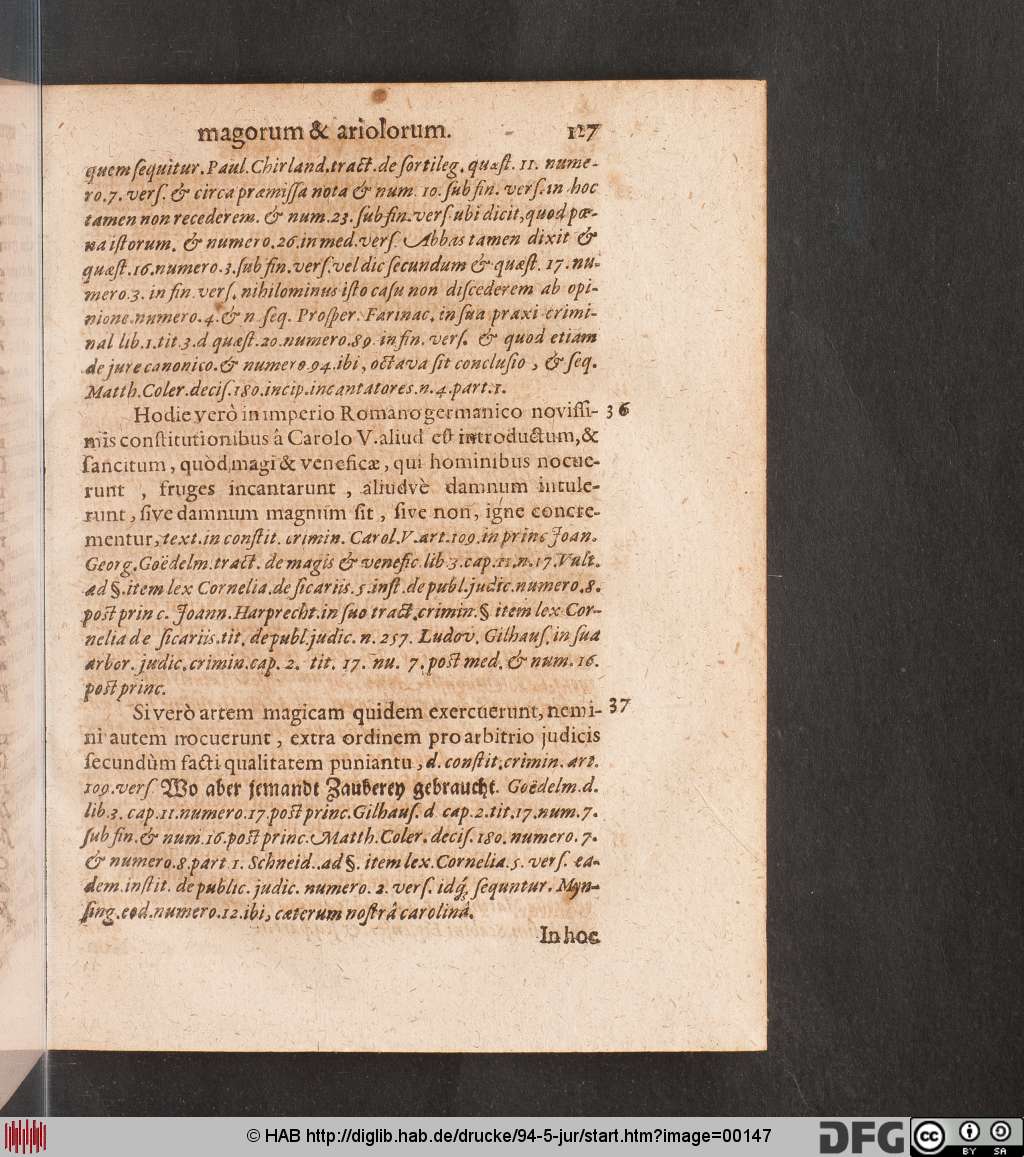 magorum & ariolorum. 127
quem ſequitur. Paul. Chirland. tract. de ſortileg. quæſt. 11. nume-
ro. 7. verſ. & circa præmiſſa nota & num. 10. ſub fin. verſ. in hoc
tamen non recederem. & num. 23. ſub fin. verſ. ubi dicit, quod pœ-
na iſtorum. & numero. 26. in med. verſ. Abbas tamen dixit &
quæſt. 16. numero. 3. ſub fin. verſ. vel dic ſecundum & quæſt. 17. nu-
mero. 3. in fin. verſ. nihilominus iſto caſu non diſcederem ab opi-
nione. numero. 4. & n ſeq. Proſper. Farinac. in ſua praxi crimi-
nal lib. 1. tit. 3. d quæſt. 20. numero. 89. in fin. verſ. & quod etiam
de jure canonico. & numero 94. ibi, octava ſit concluſio, & ſeq.
Matth. Coler. deciſ. 180. incip. incantatores. n. 4. part. 1.
Hodie verò in imperio Romano germanico noviſſi- 36
mis conſtitutionibus â Carolo V. aliud eſt introductum, &
ſancitum, quòd magi & veneficæ, qui hominibus nocue-
runt, fruges incantarunt, aliudvè damnum intule-
runt, ſive damnum magnum ſit, ſive non, igne concre-
mentur, text. in conſtit. crimin. Carol. V. art. 109. in princ Joan.
Georg. Goëdelm. tract. de magis & venefic. lib. 3. cap. 11. n. 17. Vult.
ad §. item lex Cornelia. de ſicariis. 5. inſt. de publ. judic. numero. 8.
poſt princ. Joann. Harprecht. in ſuo tract. crimin. § item lex Cor-
nelia de ſicariis. tit. de publ. judic. n. 257. Ludov. Gilhauſ. in ſua
arbor. judic. crimin. cap. 2. tit. 17. nu. 7. poſt med. & num. 16.
poſt princ.
Si verò artem magicam quidem exercuerunt, nemi- 37
ni autem nocuerunt, extra ordinem pro arbitrio judicis
ſecundùm facti qualitatem puniantu, d. conſtit. crimin. art.
109. verſ. Wo aber jemandt Zauberey gebraucht. Goëdelm. d.
lib. 3. cap. 11. numero. 17. poſt princ. Gilhauſ. d cap. 2. tit. 17. num. 7.
ſub fin. & num. 16. poſt princ. Matth. Coler. deciſ. 180. numero. 7.
& numero. 8. part 1. Schneid. ad §. item lex. Cornelia. 5. verſ. ea-
dem. inſtit. de public. judic. numero. 2. verſ. idq́; ſequntur. Myn-
ſing. eod. numero. 12. ibi, cæterum noſtrâ carolinâ.
In hoc
© HAB http://diglib.hab.de/drucke/94-5-jur/start.htm?image=00147
DFG
cc BY SA